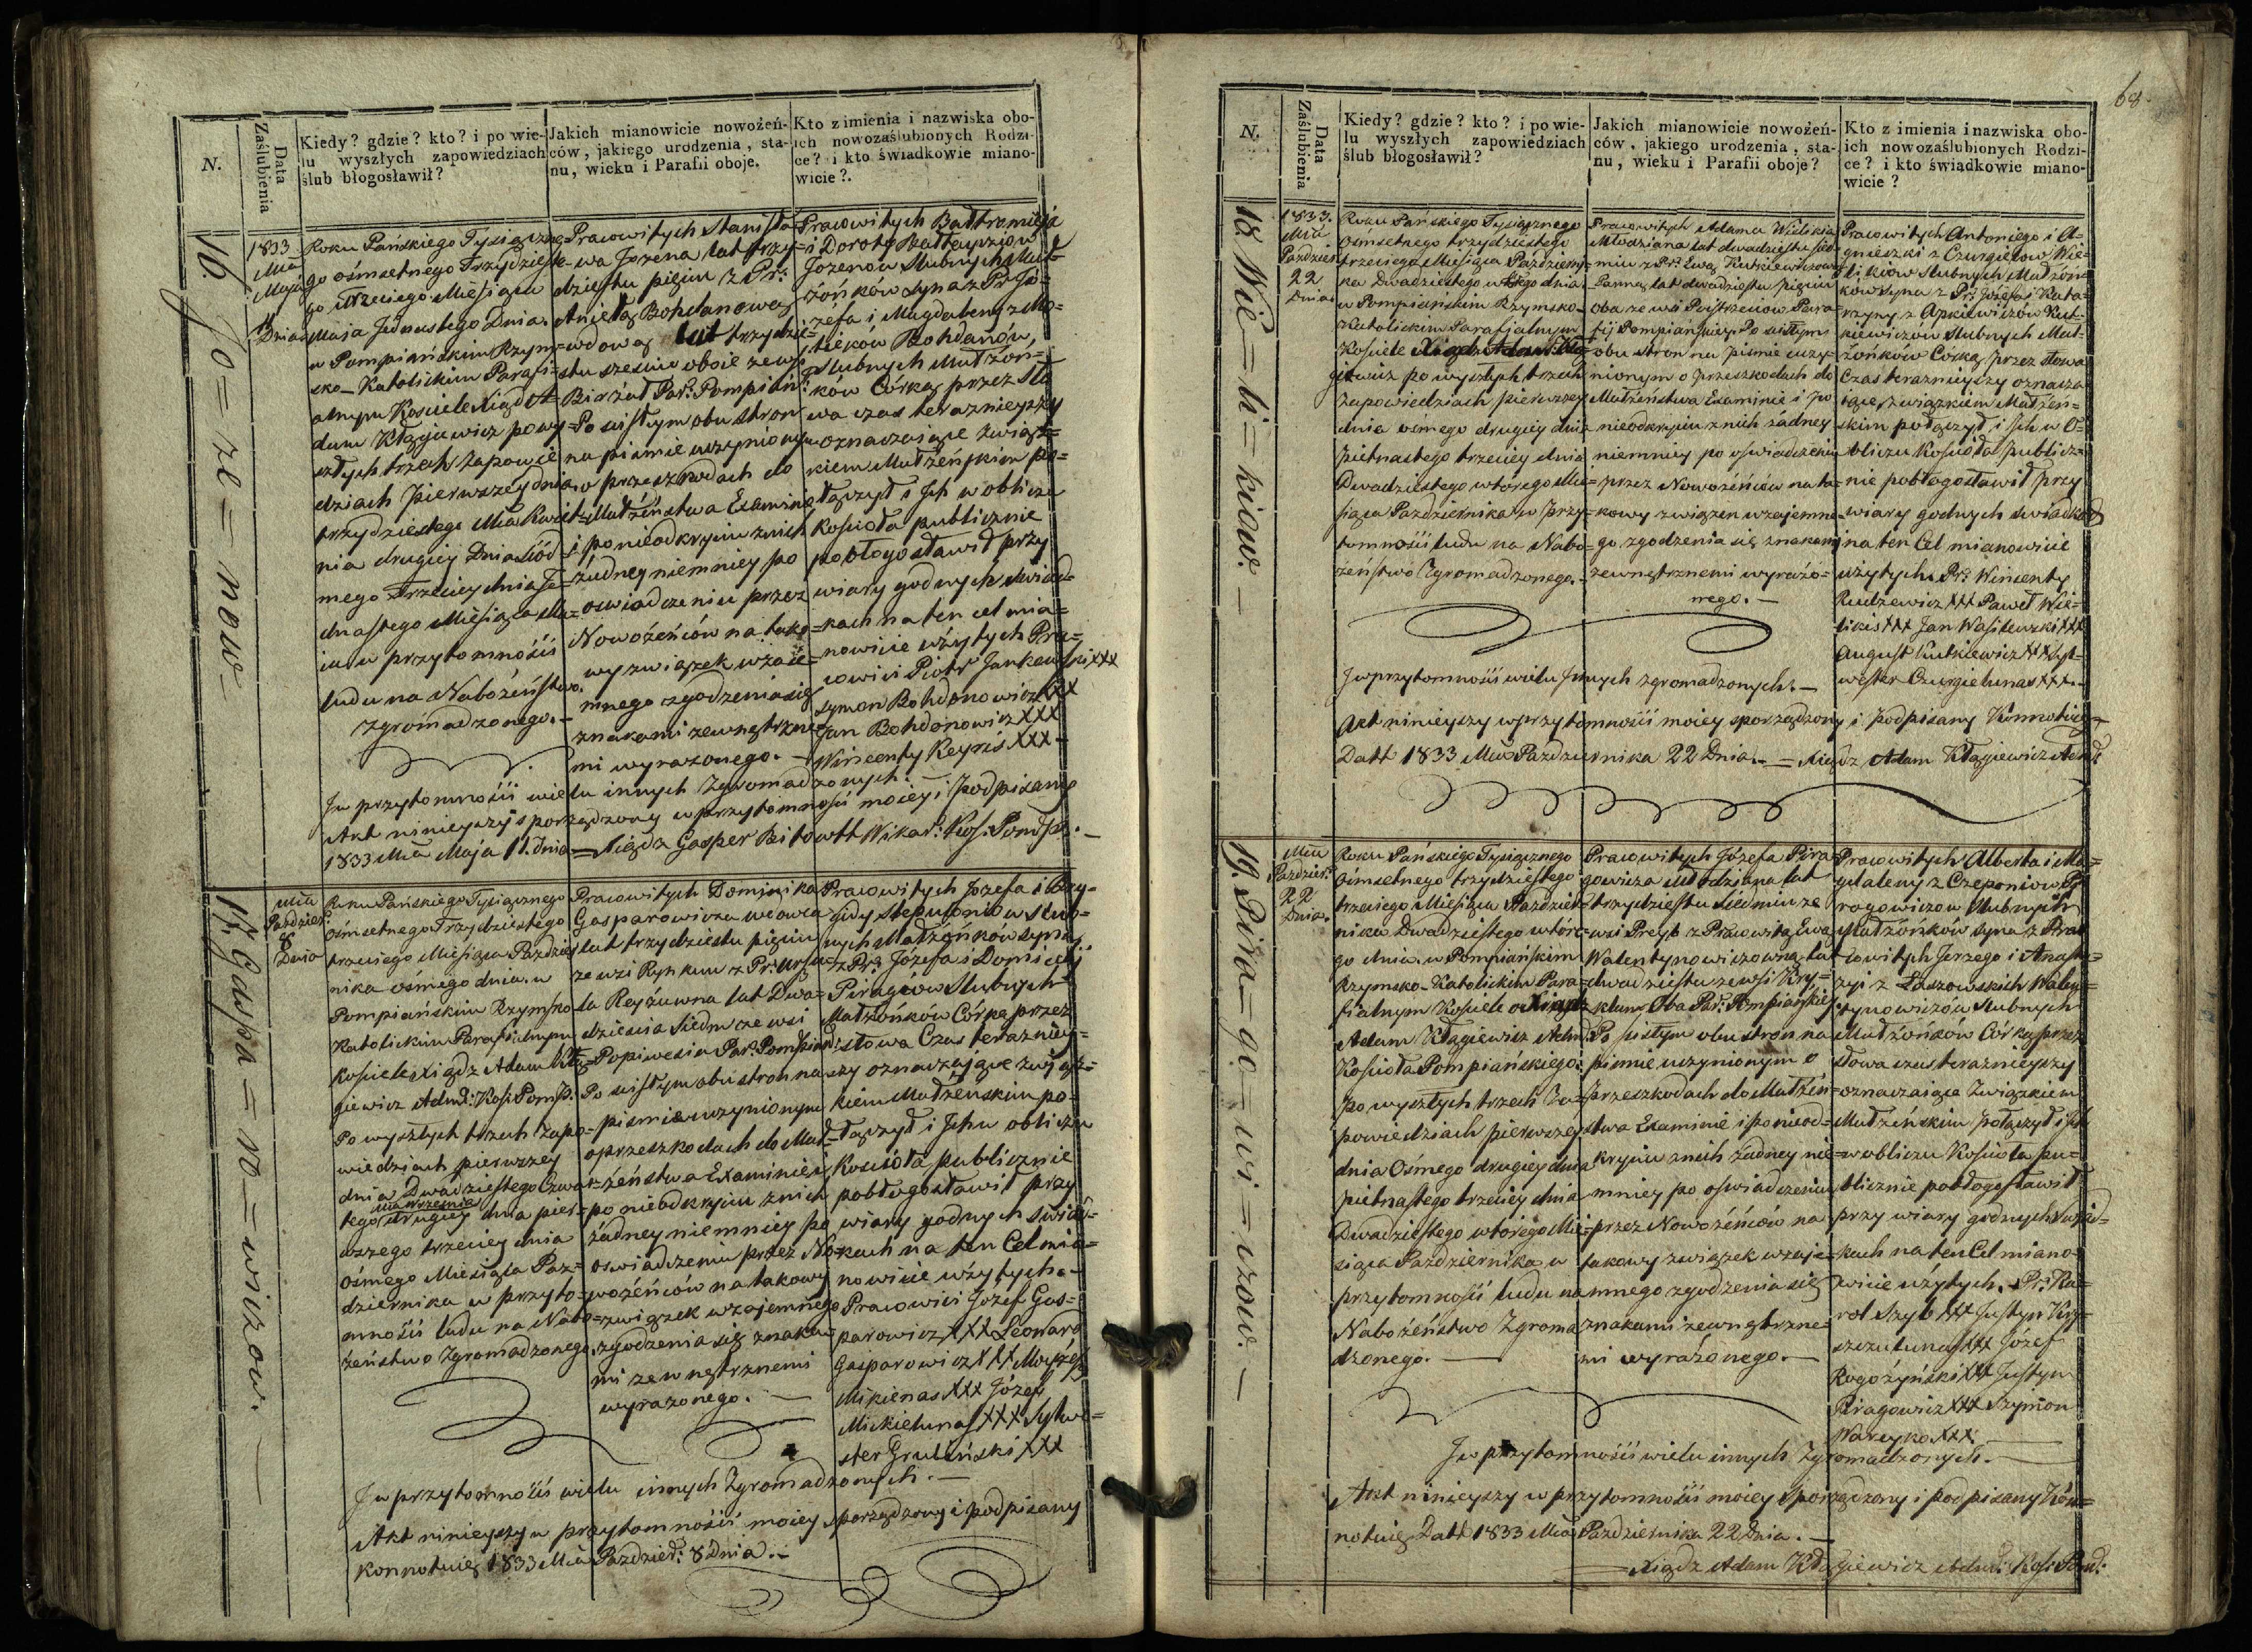 N.
Data Zaślubienia
Kiedy? gdzie? kto? i po wie-
lu wyszłych zapowiedziach
ślub błogosławił?
Jakich mianowicie nowożeń-
ców, jakiego urodzenia, sta-
nu, wieku i Parafii oboje.
Kto z imienia i nazwiska obo-
ich nowozaślubionych Rodzi-
ce? i kto świadkowie miano-
wicie?.
16.
Jo=ze=now.
1833
Mca
Maja
11
Dnia
Roku Pańskiego Tysiączne
go ośmsetnego Trzydzieste-
go trzeciego Miesiąca
Maja Jedenastego Dnia.
w Pompiańskim Rzym=
sko-Katolickim Parafi=
alnym Kosciele Xiądz A=
dam Kłągiewicz po wy=
szłych trzech Zapowie
dziach pierwszey dnia
trzydziestego Mca Kwiet=
nia drugiey Dnia Siód=
mego Trzeciey dnia Je=
dnastego Miesiąca Ma=
ia w przytomności
ludu na Nabożeństwo
zgromadzonego.-
Pracowitych Stanisła
wa Jozena lat trzy=
dziestu pięciu z Pr:
Anielą Bohdanową
wdową lat trzydzie
stu sześciu oboie ze wsi
Birżut Par: Pompiań:
Po scisłym obu stron
na piśmie uczynionym
o przeszkodach do
Małżeństwa Examinie
i po nieodkryciu znich
żadney niemniey po
oswiadczeniu przez
Nowożeńców na tako
wy związek wzaie=
mnego zgodzenia się
znakami zewnętrzne
mi wyrażonego.-
Pracowitych Bałtromieja
i Doroty
Jozenów Slubnych Mał=
żonków Syna z Pr Jó=
zefa i Magdaleny z Mo=
Bohdanów,
Slubnych Małżon=
ków Córką przez Sło
wa czas teraznieyszy
oznaczaiące Związ=
kiem Małżeńskim po=
łączył i Ich w obliczu
Kościoła publicznie
pobłogosławił przy
wiary godnych Swiad=
kach na ten cel mia=
nowicie użytych Pra=
cowici Piotr Jankowski XXX
Symon Bohdonowicz XXX
Jan Bohdonowicz XXX
Wincenty Reyris XXX
J w przytomności wielu innych Zgromadzonych.-
Akt ninieyszy sporządzony w przytomności moiey i Podpisany
1833 Mca Maja 11. dnia = Xiądz Gasper Bitowtt Wikar: Kos: Pomp:.-
17.
Gaspa=ro=wiczow.
Mca
Paździer:
8
Dnia
Roku Pańskiego Tysiącznego
Ośmsetnego Trzydziestego
trzeciego Miesiąca Paździer
nika ośmego dnia. w
Pompiańskim Rzymsko
Katolickim Parafialnym
Kosciele Xiądz Adam Kłą=
giewicz Admi: Kos: Pomp:
Po wyszłych trzech Zapo=
wiedziach pierwszey
dnia Dwadziestego Czwar=
tego Mca Września drugiey dnia pier=
wszego trzeciey dnia
Ośmego Miesiąca Paz=
dziernika w przyto=
mności ludu na Nabo=
żeństwo Zgromadzonego
Pracowitych Dominika
Gasparowicza wdowca
lat trzydziestu pięciu
ze wsi Rynkun z Pr: Urszu=
la Reyżuwna lat Dwa=
dziescia Siedm ze wsi
Popiwesia Par: Pompiań:
Po scisłym obu stron na
piśmie uczynionym
o przeszkodach do Mał=
żeństwa Examinie i
po nieodkryciu znich
żadney niemniey po
oswiadczeniu przez No=
wożeńców na takowy
związek wzajemnego
zgodzenia się znaka=
mi zewnętrznemi
wyrażonego.-
Pracowitych Jozefa i Bry=
gidy Stepulonió w slub=
nych Małżonków Syna
z Pr: Józefa i Domiceli
Slubnych
Małżonków Córką przez
słowa Czas terazniey=
szy oznaczające związ=
kiem Małżenskim po=
łączył i Ich w obliczu
Kościoła publicznie
pobłogosławił przy
wiary godnych Swiad=
kach na ten Cel mia=
nowicie użytych.-
Pracowici Jozef Gas=
parowicz XXX Leonard
Gasparowicz XXX Moyżesz
Mikienas XXX Józef
Mickielunas XXX Sylwe=
ster Grubiński XXX
J w przytomności wielu innych Zgromadzonych.-
Akt ninieyszy w przytomności moiey sporządzony i podpisany
konnotuię 1833 Mca Paździer: 8 Dnia.-
68.
N.
Data Zaślubienia
Kiedy? gdzie? kto? i po wie-
lu wyszłych zapowiedziach
ślub błogosławił?
Jakich mianowicie nowożeń-
ców, jakiego urodzenia, sta-
nu, wieku i Parafii oboje?
Kto z imienia i nazwiska obo-
ich nowozaślubionych Rodzi-
ce? i kto świadkowie miano-
wicie?
18.
Wie=li=kiow.-
1833.
Mca
Paździer
22
Dnia
Roku Pańskiego Tysiącznego
Ośmsetnego trzydziestego
trzeciego Miesiąca Październi=
ka Dwadziestego wtórego dnia
w Pompiańskim Rzymsko-
Katolickim Parafjalnym
Kosciele Xiądz Adam Kłą=
giewicz po wyszłych trzech
Zapowiedziach pierwszey
dnia ósmego drugiey dnia
Pietnastego trzeciey dnia
Dwadziestego wtórego Mie=
siąca Października w przy=
tomności ludu na Nabo=
żeństwo Zgromadzonego.-
Pracowitych Adama Wielikia
Młodziana lat dwadziestu sied=
miu z Pr: Ewą Kutkiewiczówną
Panną lat dwadziestu pięciu
oba ze wsi Para=
fij Pompiańskiey. Po scisłym
obu stron na piśmie uczy=
nionym o przeszkodach do
Małżeństwa Examinie i po
nieodkryciu znich żadney
niemniey po oświadczeniu
przez Nowożeńców na ta=
kowy związek wzajemne
go zgodzenia się znakami
zewnętrznemi wyrażo=
nego.-
Pracowitych Antoniego i A=
gnieszki z Czurgielow Wie=
likiow Slubnych Małżon=
ków Syna z Pr: Józefa i Kata=
rzyny z Kut=
kiewiczów Slubnych Mał=
żonków Córką przez słowa
Czas teraznieyszy oznacza
iące związkiem Małżeń=
skim połączył i Ich w O=
bliczu Kościoła publicz=
nie pobłogosławił przy
wiary godnych swiadkach
na ten Cel mianowicie
użytych. Pr: Wincenty
Rudzewicz XXX Paweł Wie=
likis XXX Jan Wasilewski XXX
August Kutkiewicz XXX Syl=
wester Czurgielunas XXX.-
J w przytomności wielu Innych zgromadzonych.-
Akt ninieyszy w przytomności moiey sporządzony i Podpisany Konnotuię=
Datt 1833 Mca Października 22 Dnia.- = Xiądz Adam Kłągiewicz Adm:
19.
Pira=go=wi=czow.-
Mca
Paździer:
22
Dnia.
Roku Pańskiego Tysiącznego
Ośmsetnego trzydziestego
trzeciego Miesiąca Paździer
nika Dwadziestego wtóre=
go dnia. w Pompiańskim
Rzymsko-Katolickim Para=
fialnym Kosciele Xiądz
Adam Kłągiewicz Adm:
Kościoła Pompiańskiego.
Po wyszłych trzech Za=
powiedziach pierwszey
dnia Ośmego drugiey dnia
pietnastego trzeciey dnia
Dwadziestego wtorego Mie=
siąca Października w
przytomności ludu na
Nabożeństwo Zgroma
dzonego.-
Pracowitych Józefa Pira
gowicza Młodziana lat
trzydziestu siedmiu ze
wsi Preyb z Pracowitą Ewą
Walentynowiczowną lat
dwadziestu ze wsi Kry=
klun Oba Par: Pompiańskiey
Po scisłym obu stron na
piśmie uczynionym o
przeszkodach do Małżeń=
stwa Examinie i po nieod=
kryciu znich żadney nie=
mniey po oświadczeniu
przez Nowożeńców na
takowy związek wzaje=
mnego zgodzenia się
znakami zewnętrzne=
mi wyrażonego.-
Pracowitych Alberta i Ma=
gdaleny z Czeponiow Pi
ragowiczow Slubnych
Małżonków Syna z Pra
cowitych Jerzego i Anasta=
zyi z Walen=
tynowiczów Slubnych
Małżonków Córką przez
słowa czas teraznieyszy
oznaczaiące Związkiem
Małżeńskim połączył i Ich
w obliczu Kościoła pu=
blicznie pobłogosławił
przy wiary godnych swiad=
kach na ten Cel miano
wicie użytych. Pr: Ka=
rol Szyb XXX Justyn Kry=
szczulunas XXX Józef
Rogożyński XXX Justyn
Piragowicz XXX Szymon
Nareyko XXX.
J w przytomności wielu innych Zgromadzonych.-
Akt ninieyszy w przytomności moiey Sporządzony i podpisany Kón=
notuię Datt 1833 Mca Października 22 Dnia.-
= Xiądz Adam Kłągiewicz Admi: Kos: Pom: